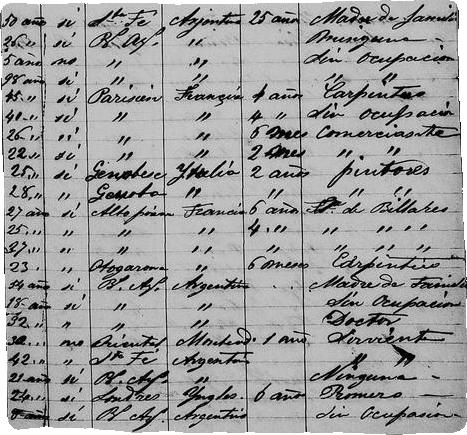 50 año sí Sta Fé Argentina 25 años Madre de familia
26 „ sí Bs. Ays. „ Ninguna —
5 años no „ „ Sin Ocupación
98 año sí „ „ „ „
45 „ sí Parisien Francia 4 años Carpintero
40 „ sí „ „ 4 „ Sin Ocupación
26 „ sí „ „ 6 mes Comerciante
22 „ sí „ „ 2 mes „ „
25 „ sí Genobes Ytalia 2 años pintores
28 „ „ Genoba „ „ „ „
27 año sí Francia 6 años de Billares
25 „ „ „ „ 4 „ „ „ „
27 „ „ „ „ „ „ „
23 „ „ „ 6 meses Carpintero
54 año sí Bs. Ays. Argentina Madre de Familia
18 año sí „ „ Sin Ocupación
32 „ „ „ „ Doctor
30 „ no Oriental Montevid. 1 año Sirviente
42 „ „ Sta Fé Argentina „ „
21 año sí Bs. Ays. „ Ninguna —
24 „ sí Londres Ingles 6 año Romero —
8 año sí Bs. Ays. Argentina Sin Ocupasion